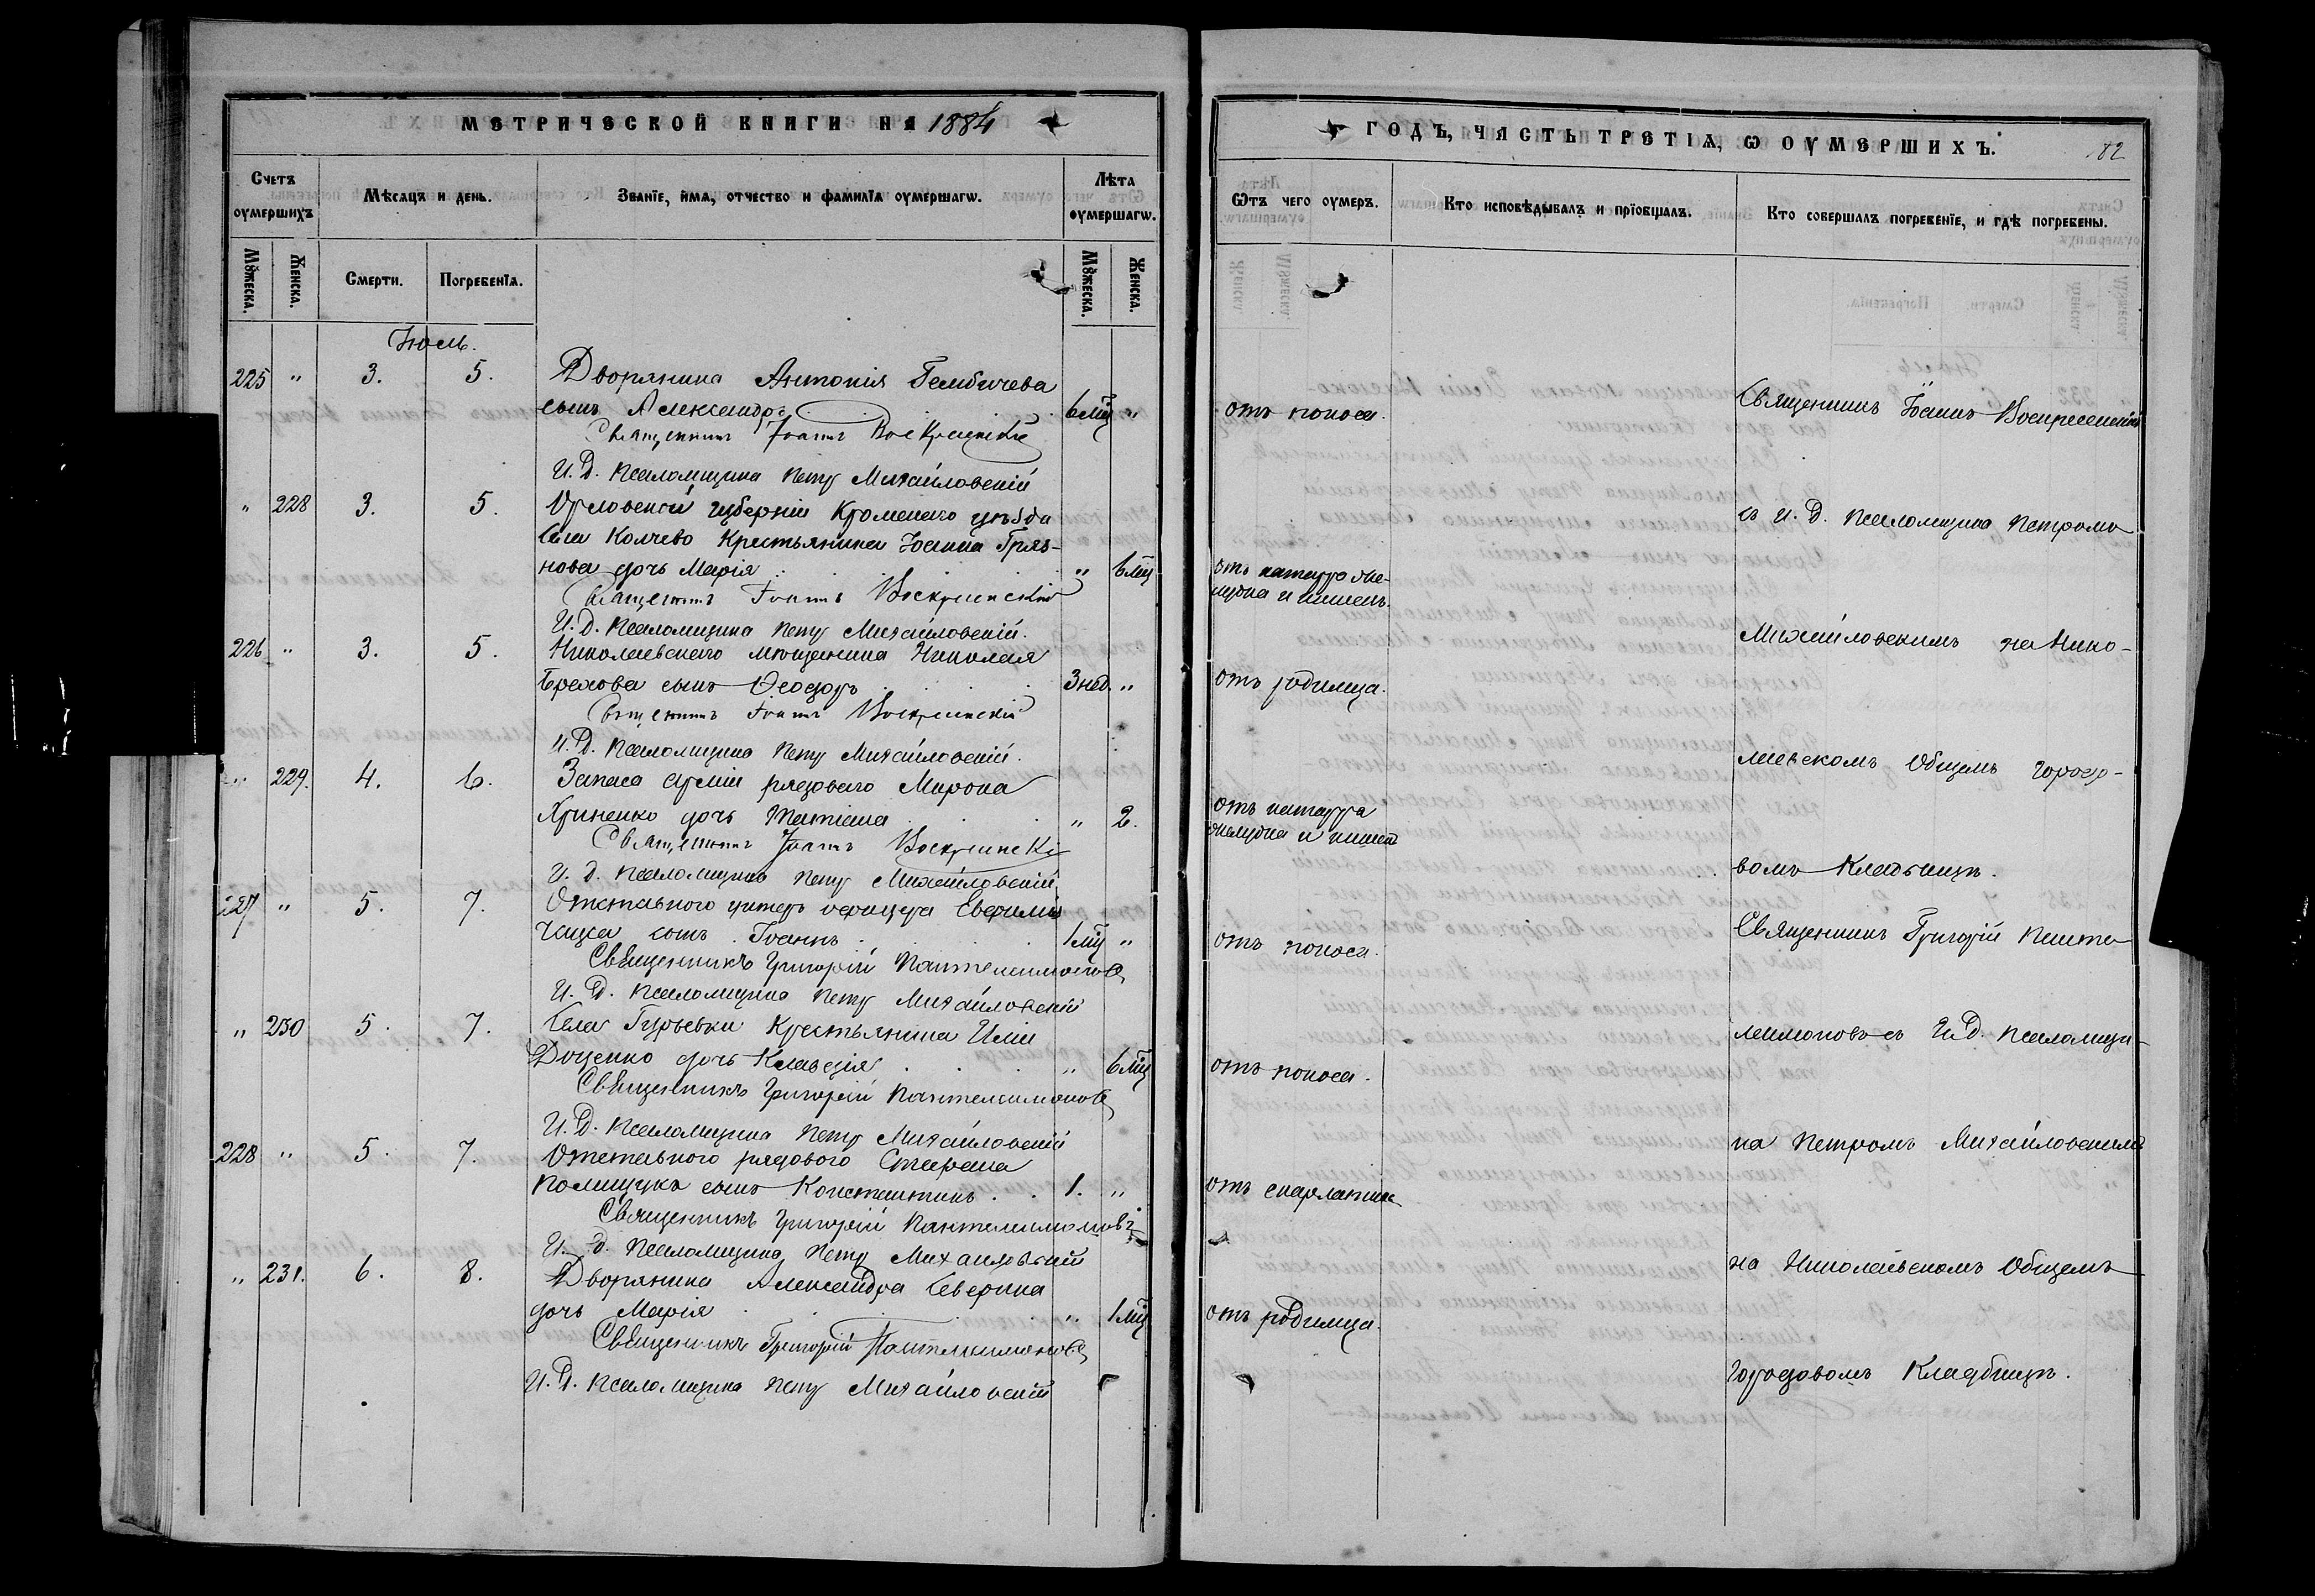 МЕТРИЧЕСКОЙ КНИГИ НА 1884
Счетъ оумершихъ
Мѣсяцъ и день.
Званїе, имя, отчество и фамилїя оумершагѡ.
Лѣта оумершагѡ.
Мꙋжеска.
Женска.
Смерти.
Погребенїя.
Мꙋжеска.
Женска.
Июль.
225 " 3. 5. Дворянина Антонія
сынъ Александръ 6 мц "
Священникъ Іоаннъ Воскресенскій
И. Д. Псаломщика Петръ Михайловскій
" 228 3. 5. Орловской губерніи Кромскаго уѣзда
села Колчево Крестьянина Іоанна Гряз-
нова дочь Марія " 6 мц
Священникъ Іоаннъ Воскресенскій
И. Д. Псаломщика Петръ Михайловскій.
226 " 3. 5. Николаевскаго мѣщанина Николая
Брехова сынъ Ѳеодоръ 3 нед. "
Священникъ Іоаннъ Воскресенскій
И. Д. Псаломщика Петръ Михайловскій.
" 229. 4. 6. Запаса арміи рядоваго Мирона
Яриненко дочь Татіана " 2.
Священникъ Іоаннъ Воскресенскій
И. Д. Псаломщика Петръ Михайловскій
227 " 5. 7. Отставного унтеръ офицера Евфимія
сынъ Іоаннъ 1 мц "
Священникъ Григорій Пантелеимоновъ
И. Д. Псаломщика Петръ Михайловскій
" 230 5. 7. Села Гурьевки Крестьянина Иліи
Доценко дочь Клавдія " 6 мц
Священникъ Григорій Пантелеимоновъ
И. Д. Псаломщика Петръ Михайловскій
228 " 5. 7. Отставного рядового Стефана
Полищука сынъ Константинъ 1. "
Священникъ Григорій Пантелеимоновъ
И. Д. Псаломщика Петръ Михайловскій
" 231. 6. 8. Дворянина Александра Северина
дочь Марія " 1 мц
Священникъ Григорій Пантелеимоновъ
И. Д. Псаломщика Петръ Михайловскій
ГОДЪ, ЧАСТЬ ТРЕТІѦ, Ѡ ОУМЕРШИХЪ.
182
Ѿтъ чего оумеръ.
Кто исповѣдывалъ и прїобщалъ.
Кто совершалъ погребенїе, и гдѣ погребены.
отъ поноса.
отъ катарра же-
лудка и кишекъ.
отъ родимца.
отъ катарра
желудка и кишекъ
отъ поноса.
отъ поноса.
отъ скарлатины
отъ родимца.
Священникъ Іоаннъ Воскресенскій
съ И. Д. Псаломщика Петромъ
Михайловскимъ на Нико-
лаевскомъ Общемъ Городо-
вомъ Кладбищѣ.
Священникъ Григорій Панте-
леимоновъ съ И. Д. Псаломщи-
ка Петромъ Михайловскимъ
на Николаевскомъ Общемъ
Городовомъ Кладбищѣ.